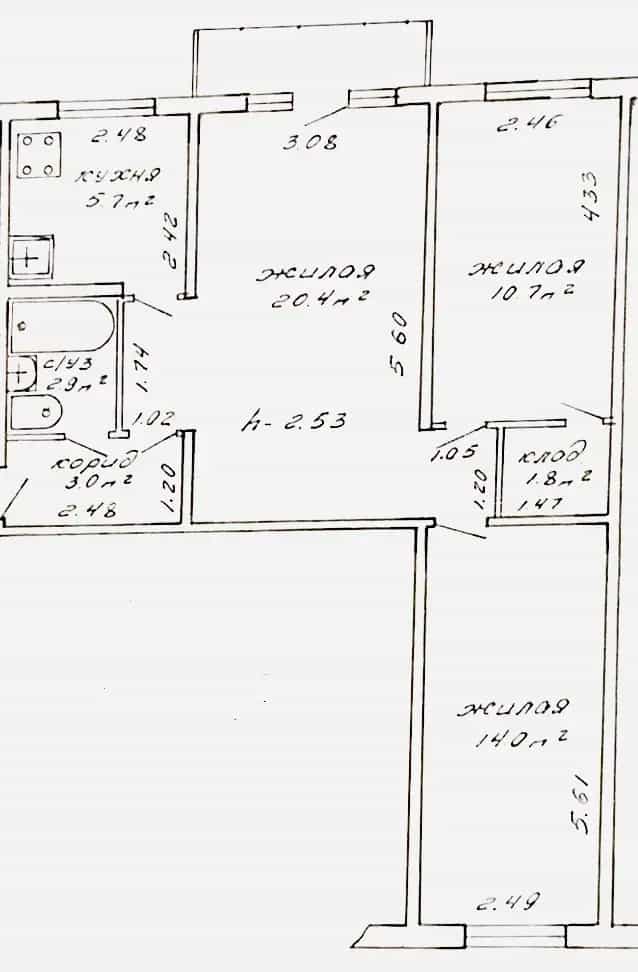 2.48
кухня
5.7м²
2.42
3.08
жилая
20.4м²
5.60
2.46
4.33
жилая
10.7м²
с/уз
2.9м²
1.74
1.02
h-2.53
корид
3.0м²
2.48
1.20
1.05
1.20
клад
1.8м²
1.47
жилая
14.0м²
5.61
2.49